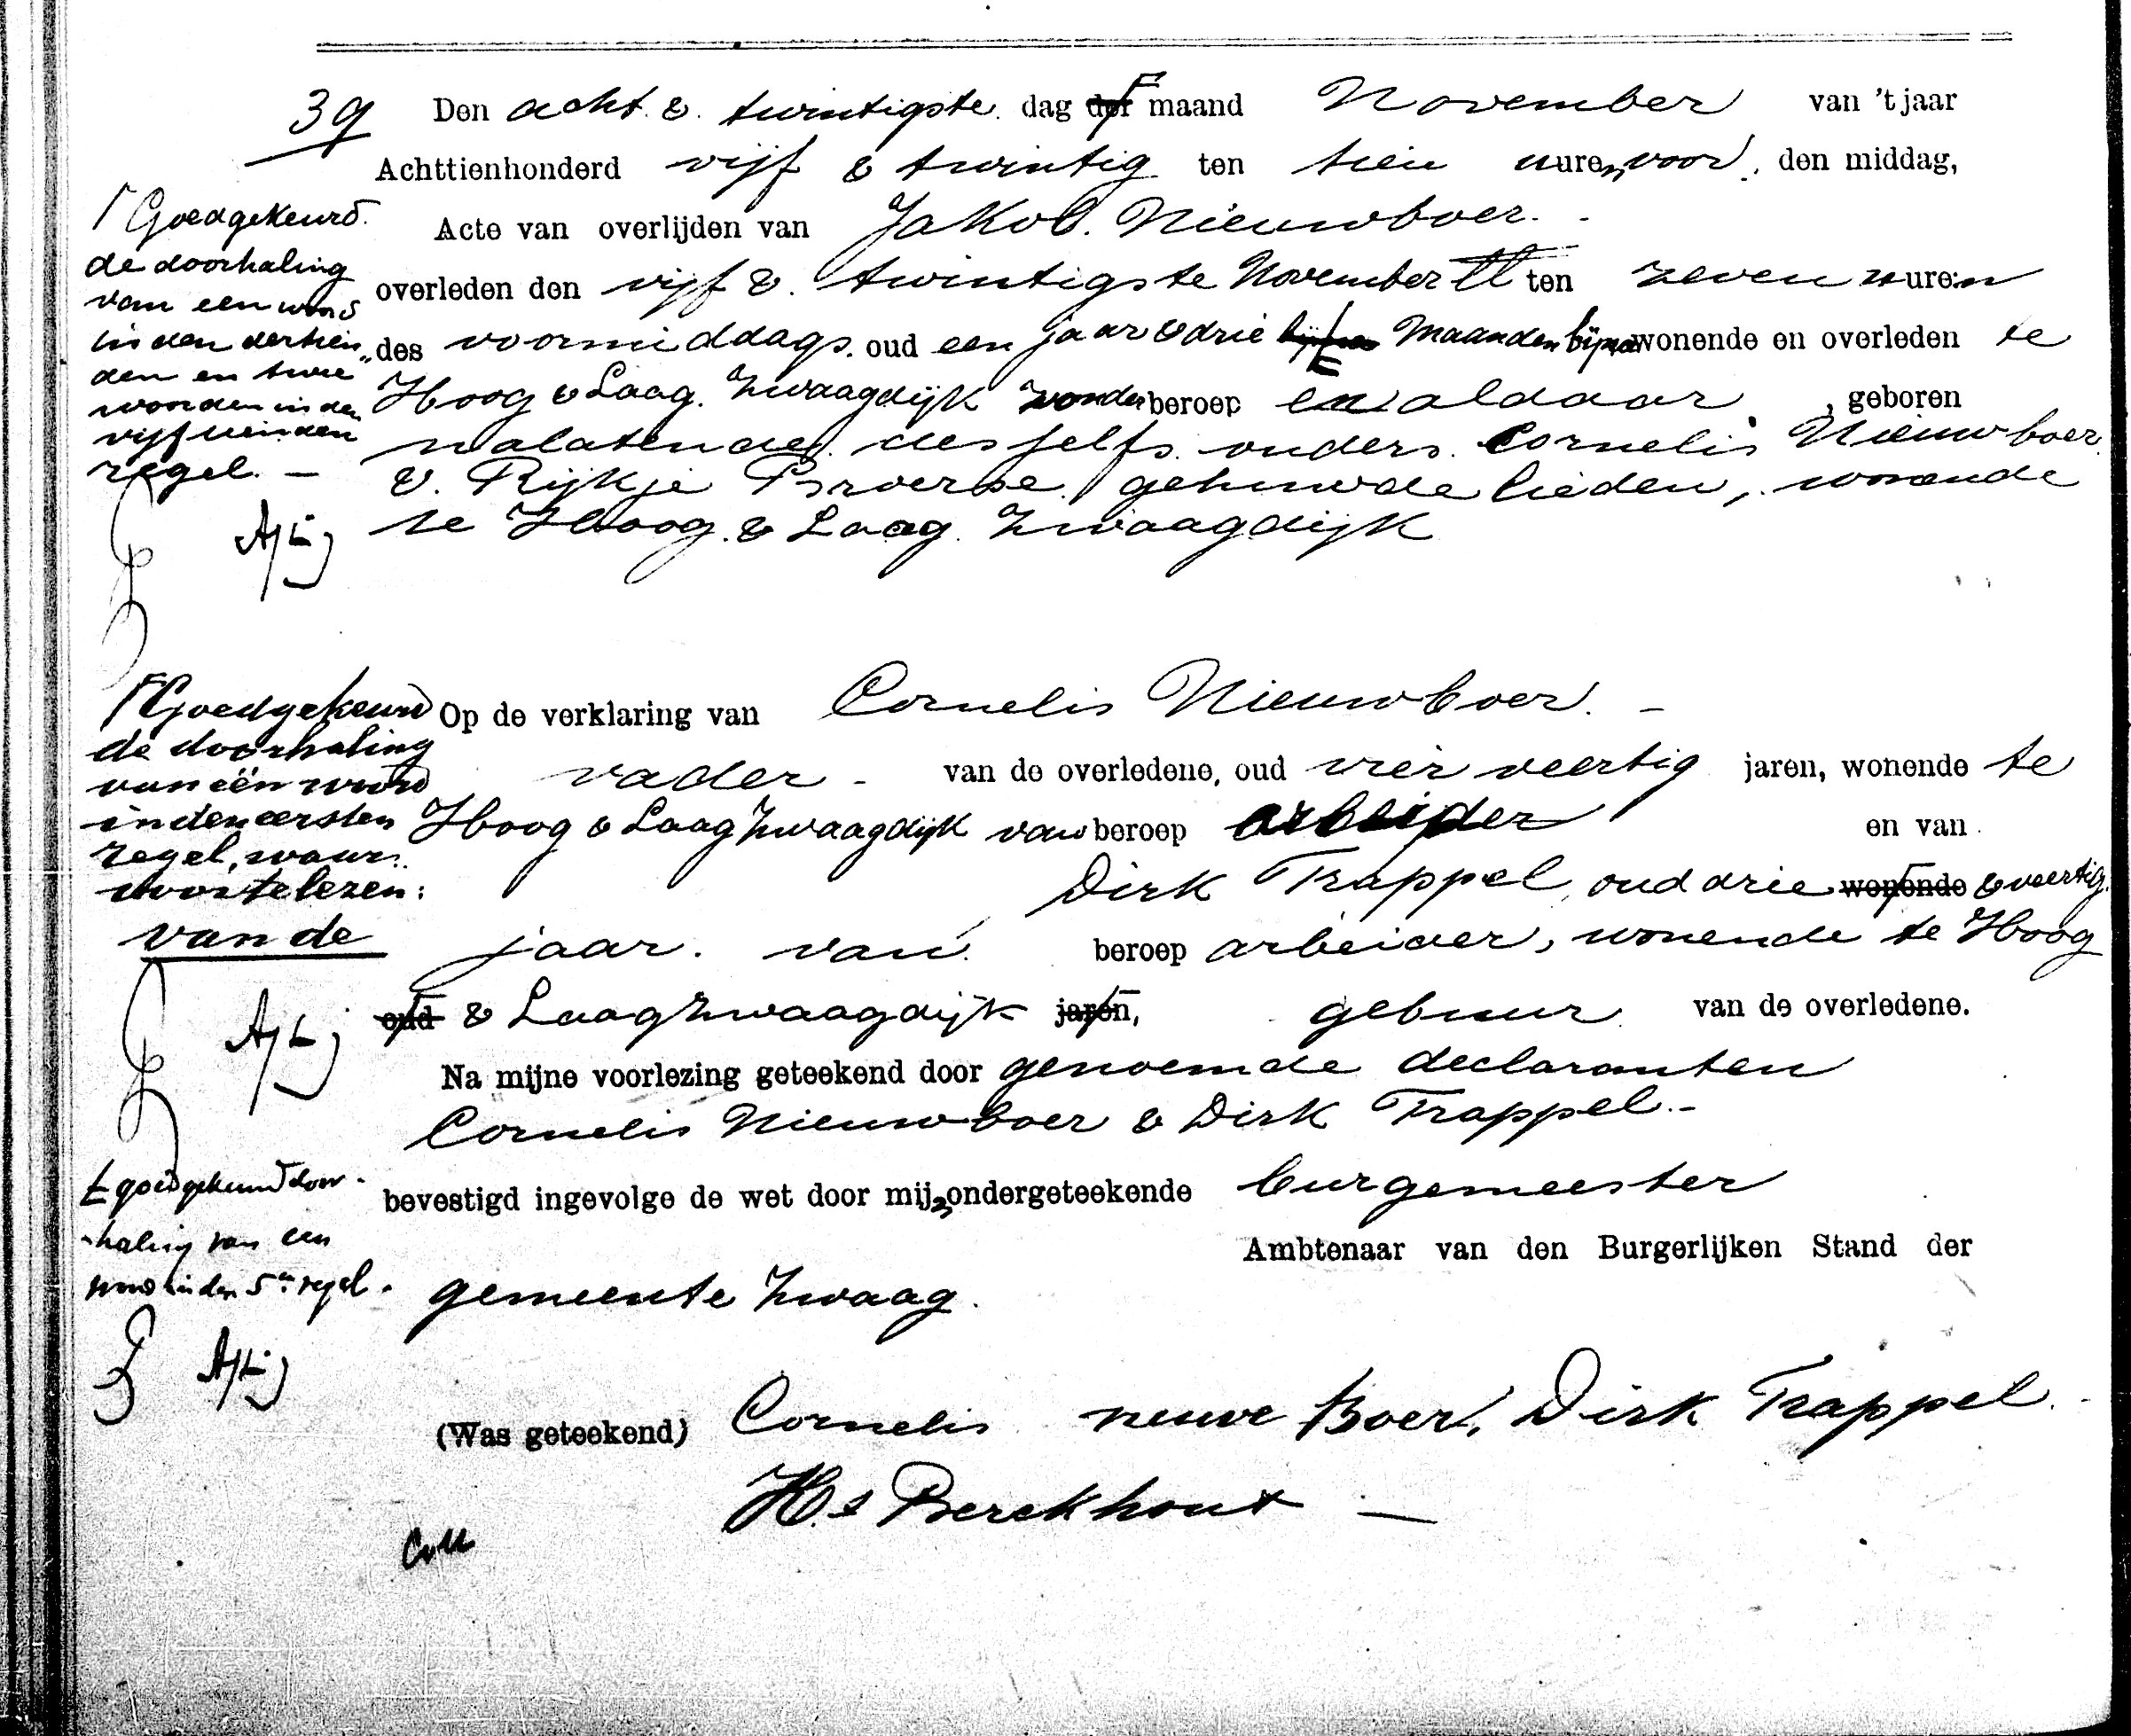 39 Den acht & twintigste dag der maand November van 't jaar
Achttienhonderd vijf & twintig ten tien uuren, voor den middag,
Acte van overlijden van Jakob Nieuwboer.
overleden den vijf & twintigste November ll ten zeven uuren
des voormiddags oud een jaar & drie bijna Maanden bijna wonende en overleden te
Hoog & Laag Zwaagdijk zonder beroep en aldaar, geboren
nalatende desselfs ouders Cornelis Nieuwboer
& Rijkje Broerse gehuwde lieden, wonende
te Hoog & Laag Zwaagdijk
Goedgekeurd
de doorhaling
van een woord
in den dertien„
den en twee
woorden in den
vijftienden
regel. —
Op de verklaring van Cornelis Nieuwboer. —
vader - van de overledene, oud vier veertig jaren, wonende te
Hoog & Laag Zwaagdijk van beroep arbeider en van
Dirk Trappel, oud drie wonende & veertig
jaar. van beroep arbeider, wonende te Hoog
oud & Laag Zwaagdijk jaren, gebuur van de overledene.
Na mijne voorlezing geteekend door genoemde declaranten
Cornelis Nieuwboer & Dirk Trappel.-
bevestigd ingevolge de wet door mij, ondergeteekende burgemeester
Ambtenaar van den Burgerlijken Stand der
gemeente Zwaag.
Goedgekeurd
de doorhaling
van één woord
in den eersten
regel, waar
voor te lezen:
van de
goedgekeurd door-
haling van een
woord in den 5en regel.
(Was geteekend) Cornelis neuwe Boer, Dirk Trappel.
Hs Berckhout —
Coll